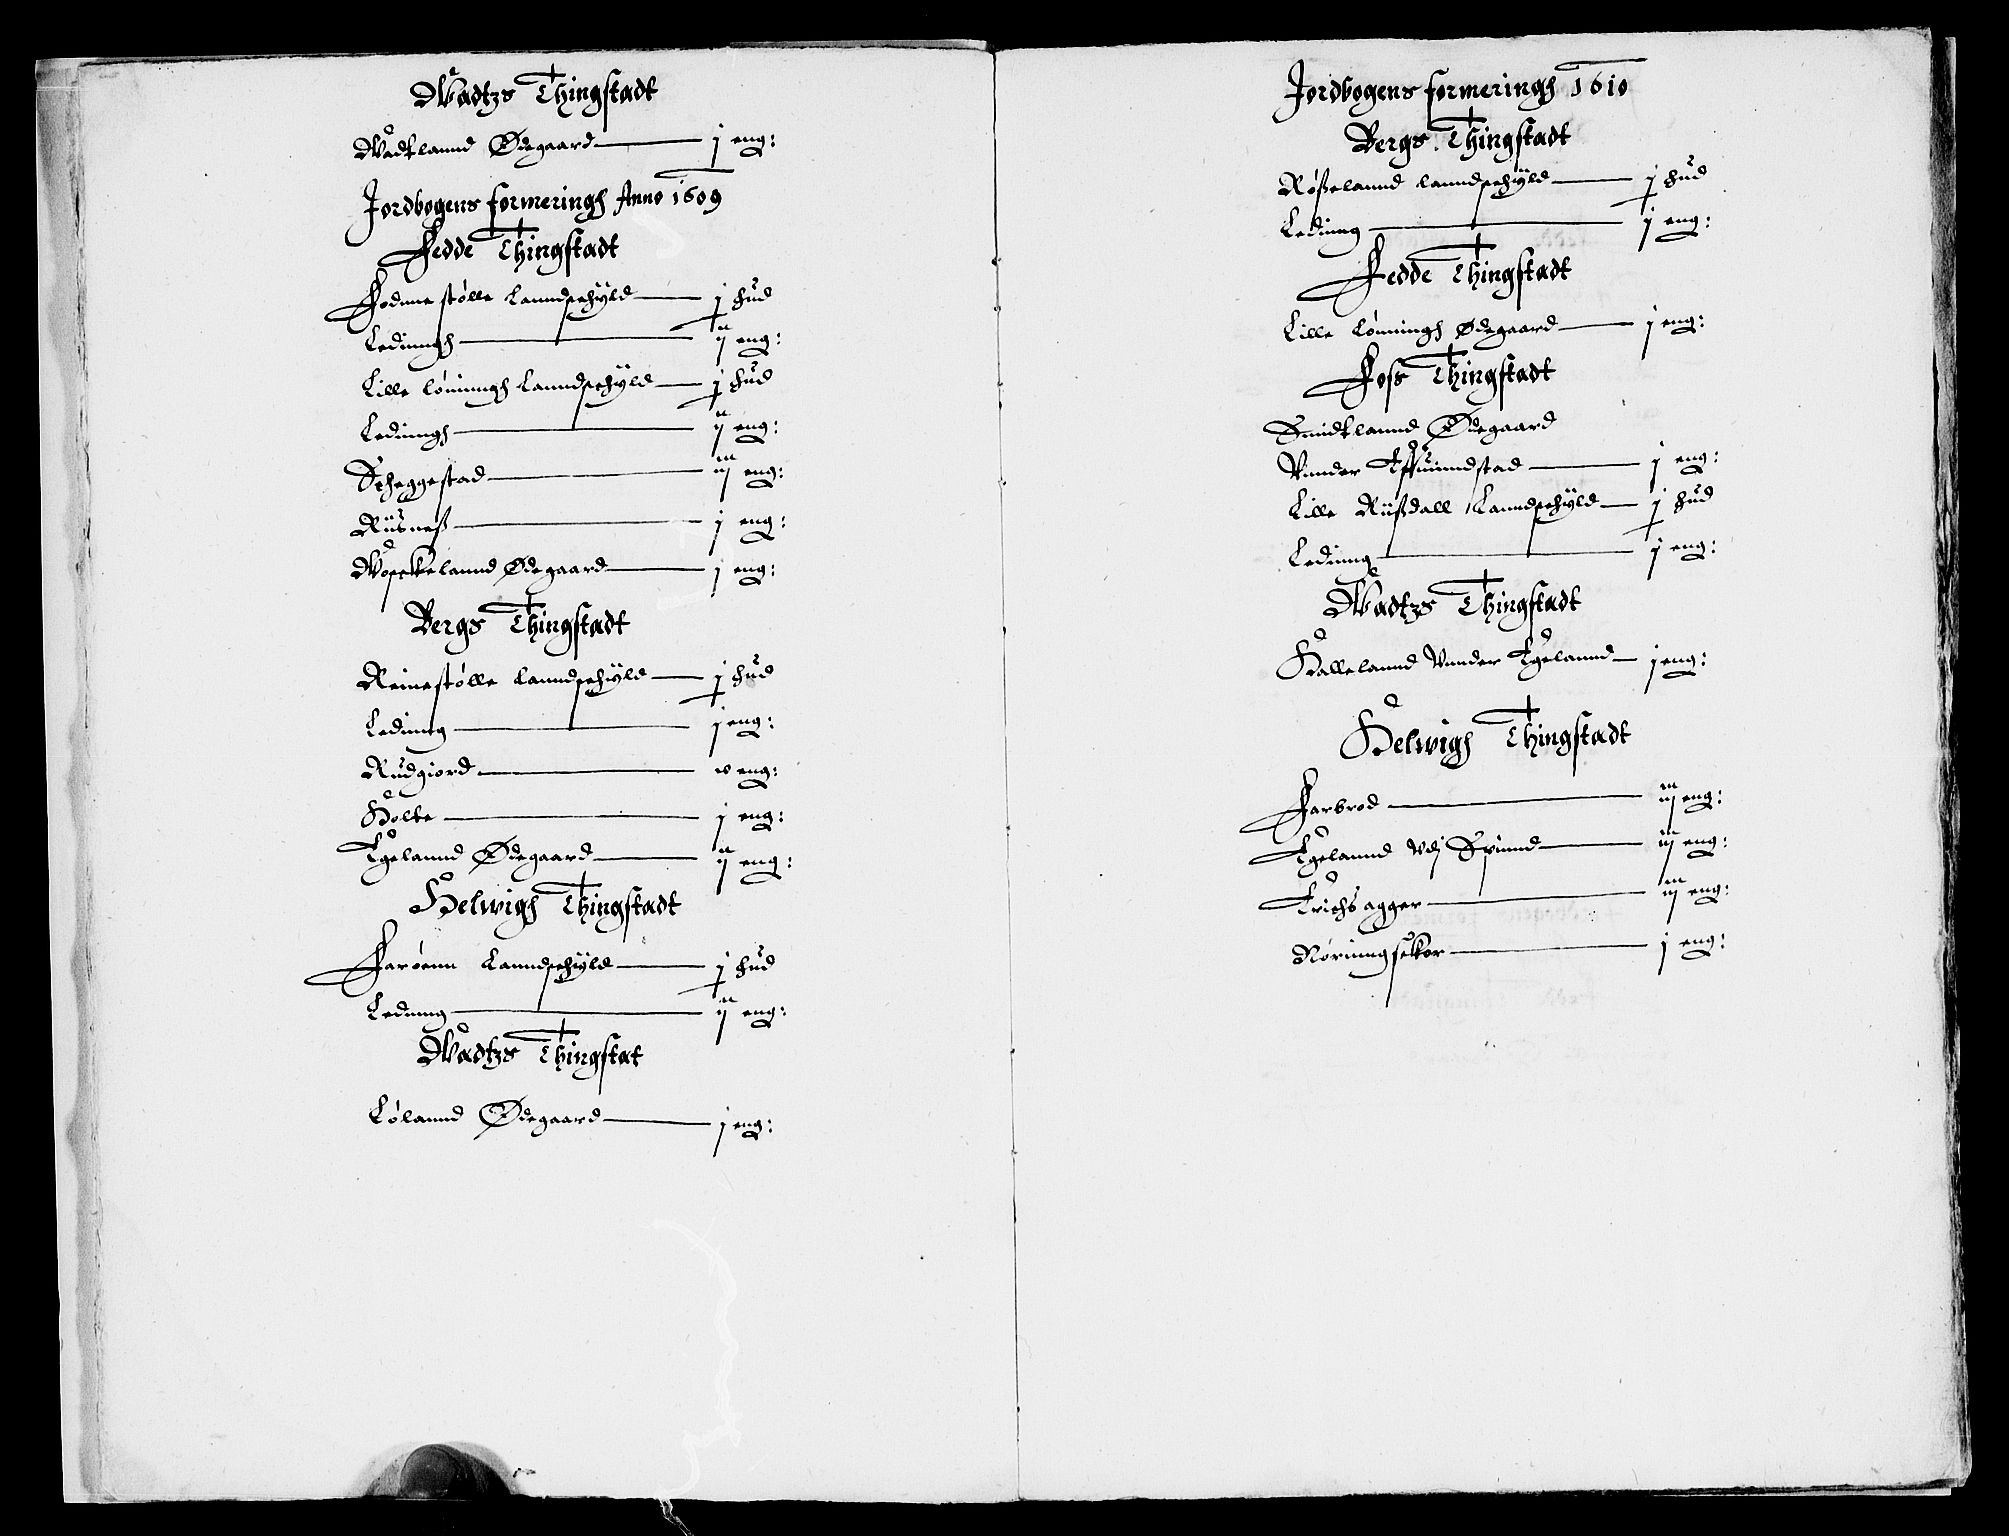 Wadtzs Thingstadt
Wadtlannd Ødegaard j eng:
Jordbogens formeringh Anno 1609
Fedde Thingstadt
Fodnestølle Lanndschyld j hud
Ledinngh ij eng:
Lille Lønningh Lanndschyld j hud
Ledinngh ij eng:
Scheggestad iij eng:
Riisneß j eng:
Wosckelannd Ødegaard j eng:
Bergs Thingstadt
Reinestølle lanndschyld j hud
Ledinng j eng:
Rudgiord v eng:
Holte j eng:
Egelannd Ødegaard ij eng:
Helwigh Thingstadt
Farøenn Lanndschyld j hud
Ledinng ij eng:
Wadtzs Thingstat
Lølannd Ødegaard j eng:
Jordbogens formeringh 1610
Bergs Thingstadt
Røßelannd lanndschyld j hud
Ledinng j eng:
Fedde Thingstadt
Lille Lønningh Ødegaard j eng:
Foss Thingstadt
Smidtlannd Ødegaard
Vnnder j eng:
Lille Riißdall Lanndschyld j hud
Ledinng j eng:
Wadtzs Thingstadt
Hallelannd Vnnder Egelannd j eng:
Helwigh Thingstadt
Farbrod iij eng:
Egelannd Vdj Spinnd iij eng:
Erichsagger iij eng:
Nørinngsekor j eng: